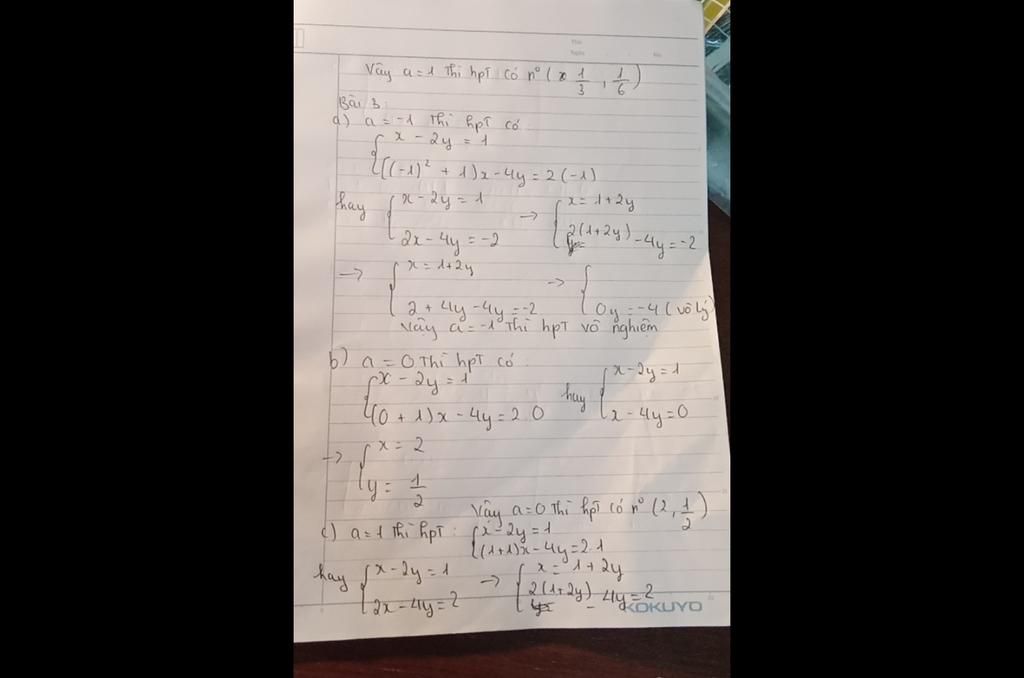 Vậy a = 1 thì hpt có n⁰ ( 1/3 , 1/6 )
Bài 3:
a) a = -1 thì hpt có:
{ x - 2y = 1
{ [(-1)² + 1)x - 4y = 2(-1)
hay { x - 2y = 1 → { x = 1 + 2y
{ 2x - 4y = -2 { 2(1+2y) - 4y = -2
→ { x = 1 + 2y → {
{ 2 + 4y - 4y = -2 { 0y = -4 (vô lý)
Vậy a = -1 thì hpt vô nghiệm
b) a = 0 thì hpt có:
{ x - 2y = 1 hay { x - 2y = 1
{ (0 + 1)x - 4y = 2.0 { x - 4y = 0
→ { x = 2
{ y = 1/2
Vậy a = 0 thì hpt có n⁰ (2, 1/2)
c) a = 1 thì hpt: { x - 2y = 1
{ (1+1)x - 4y = 2.1
hay { x - 2y = 1 → { x = 1 + 2y
{ 2x - 4y = 2 { 2(1+2y) - 4y = 2
KOKUYO